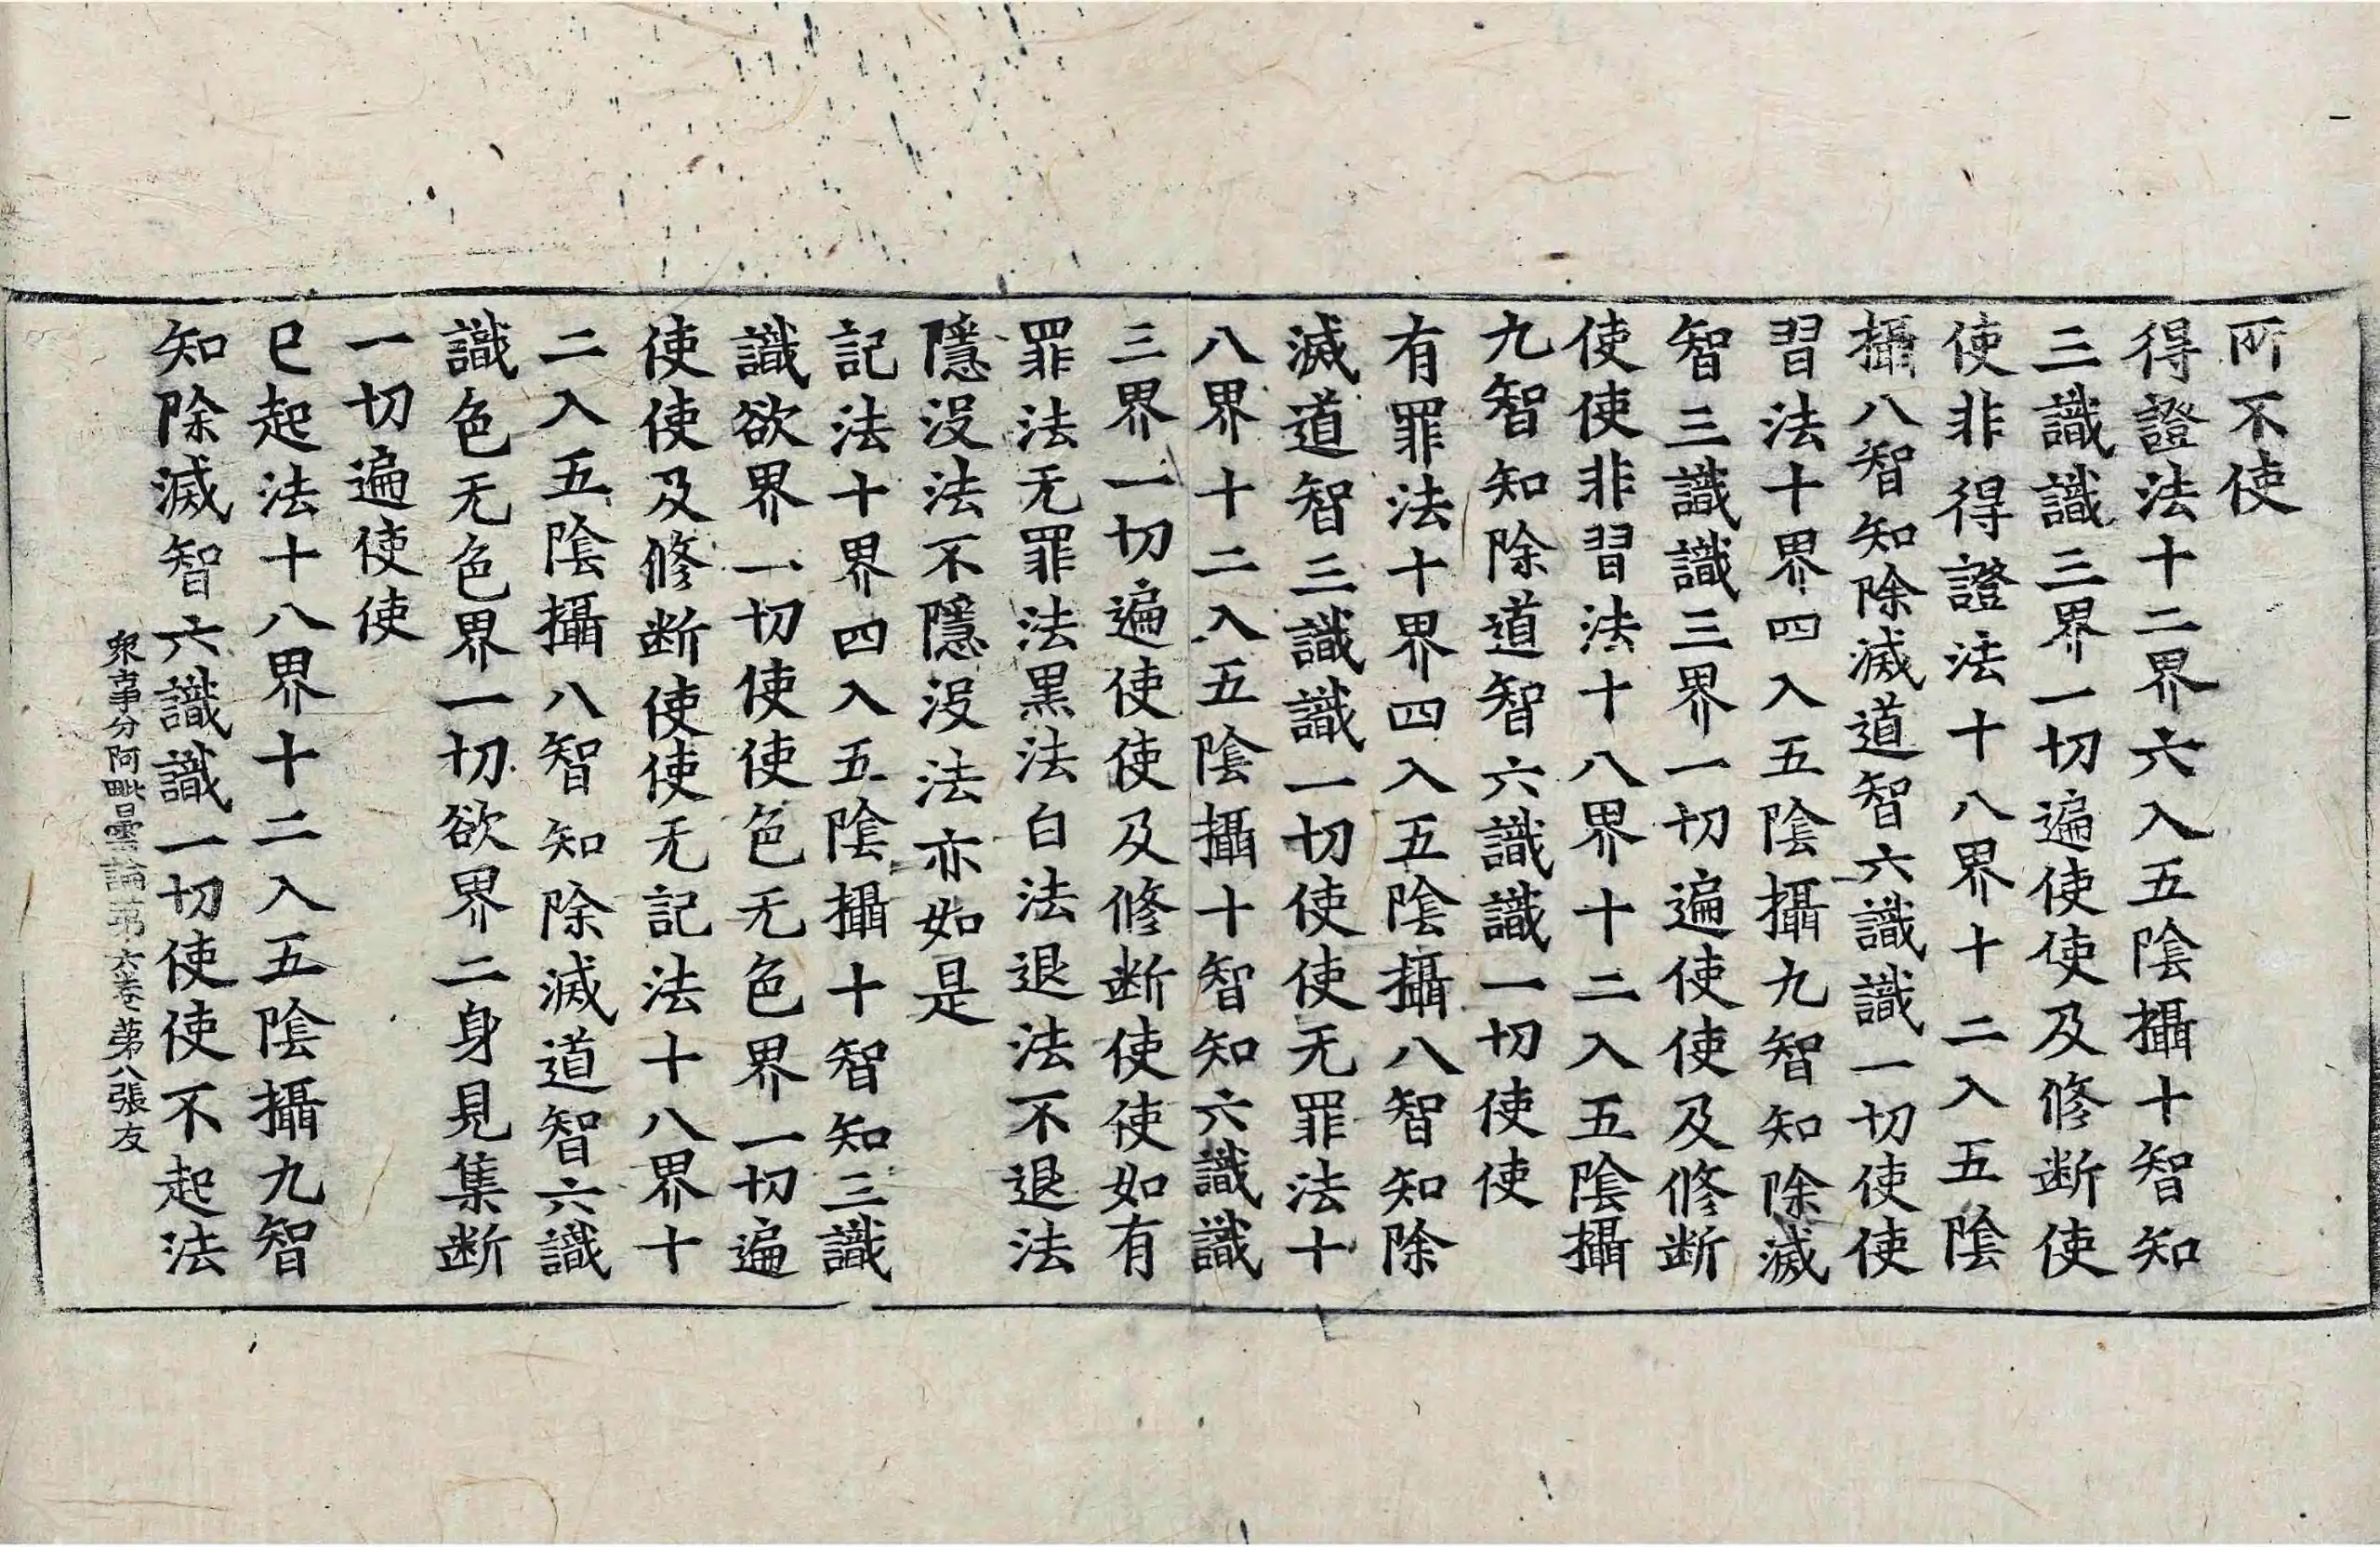 所不使
得證法十二界六入五陰攝十智知
三識識三界一切遍使使及修断使
使非得證法十八界十二入五陰
攝八智知除滅道智六識識一切使使
習法十界四入五陰攝九智知除滅
智三識識三界一切遍使使及修断
使使非習法十八界十二入五陰攝
九智知除道智六識識一切使使
有罪法十界四入五陰攝八智知除
滅道智三識識一切使使无罪法十
八界十二入五陰攝十智知六識識
三界一切遍使使及修断使使如有
罪法无罪法黒法白法退法不退法
隱没法不隱没法亦如是
記法十界四入五陰攝十智知三識
識欲界一切使使色无色界一切遍
使使及修断使使无記法十八界十
二入五陰攝八智知除滅道智六識
識色无色界一切欲界二身見集断
一切遍使使
已起法十八界十二入五陰攝九智
知除滅智六識識一切使使不起法
衆事分阿毗曇論第六卷 第八張友